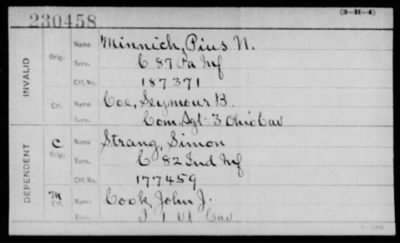 (3-H-4)
230458
INVALID
Orig. Name Minnich, Pius N.
Serv. C 87 Pa Inf
Ctf. No. 187371
Ctf. Name Coe, Seymour B.
Serv. Com Sgt 3 Ohio Cav
DEPENDENT
C Orig. Name Strang, Simon
Serv. C 82 Ind Inf
Ctf. No. 177459
M Ctf. Name Cook, John J.
Serv. I 1 Vt Cav